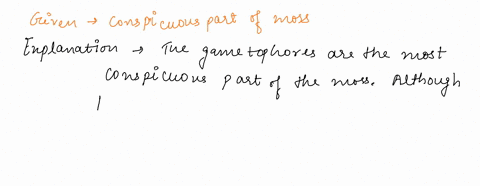 Given → Conspicuous part of moss
Explanation → The gametophores are the most
conspicuous part of the moss. Although